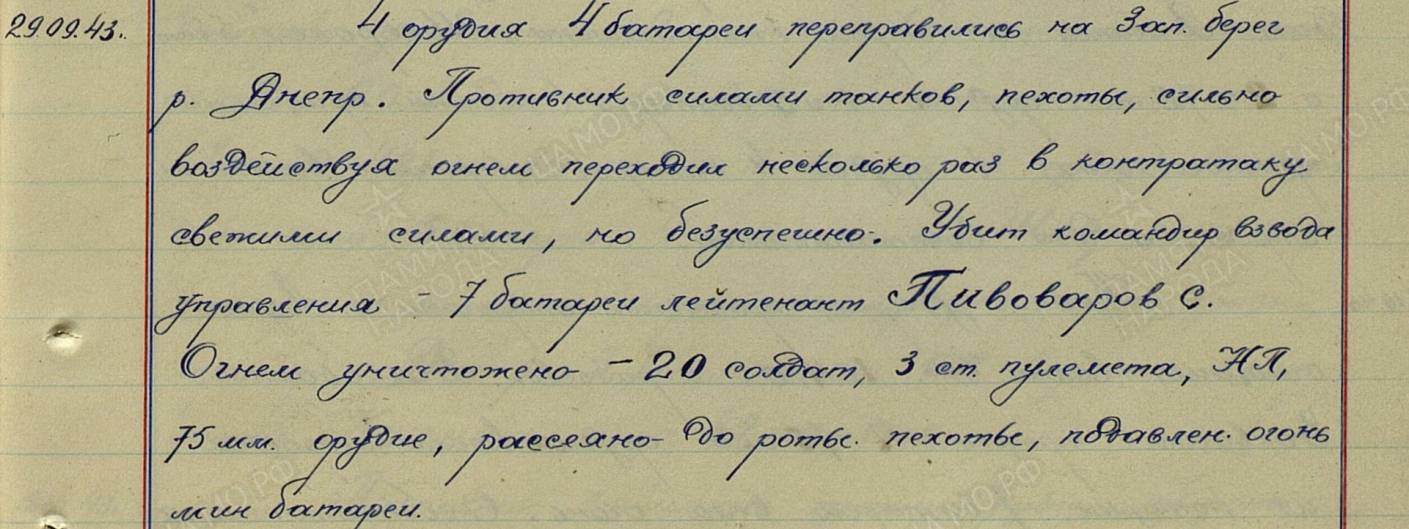 29.09.43. 4 орудия 4 батареи переправились на Зап. берег
р. Днепр. Противник силами танков, пехоты, сильно
воздействуя огнем переходил несколько раз в контратаку
свежими силами, но безуспешно. Убит командир взвода
управления - 7 батареи лейтенант Пивоваров С.
Огнем уничтожено - 20 солдат, 3 ст. пулемета, НП,
75 мм. орудие, рассеяно - до роты. пехоты, подавлен. огонь
мин батареи.